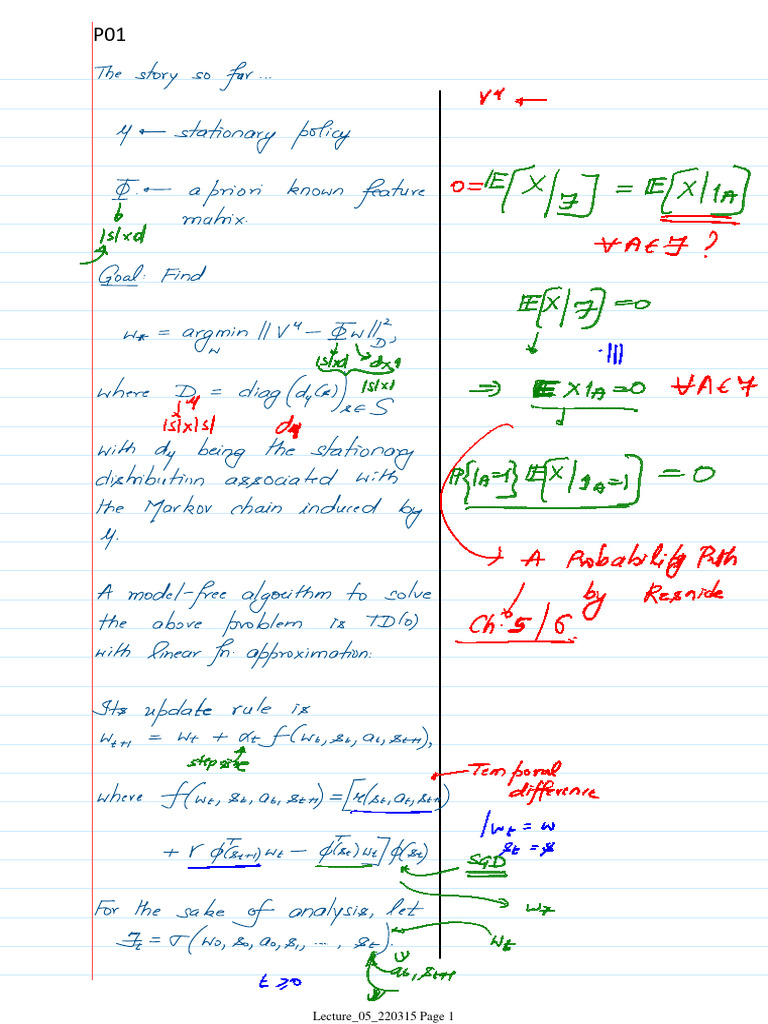 P01
The story so far...
μ ← stationary policy
Φ ← a priori known feature
matrix.
|S|xd
Goal: Find
w* = argmin ‖V^μ − Φw‖²_D,
w
|S|xd dx1
|S|x1
where D = diag(d_μ(s))_{s∈S}
|S|x|S| d_μ
with d_μ being the stationary
distribution associated with
the Markov chain induced by
μ.
A model-free algorithm to solve
the above problem is TD(0)
with linear fn. approximation.
Its update rule is
w_{t+1} = w_t + α_t f(w_t, s_t, a_t, s_{t+1}),
stepsize
where f(w_t, s_t, a_t, s_{t+1}) = [r(s_t, a_t, s_{t+1})
+ γ φ^T(s_{t+1}) w_t − φ^T(s_t) w_t] φ(s_t)
For the sake of analysis, let
F_t = σ(w_0, s_0, a_0, s_1, ..., s_t).
t ≥ 0
a_t, s_{t+1}
V^μ ←
0 = E[X|F] = E[X|1_A]
∀ A ∈ F ?
E[X|F] = 0
⇒ E X 1_A = 0 ∀ A ∈ F
P{1_A=1} E[X|1_A=1] = 0
→ A Probability Path
by Resnick
Ch. 5/6
Temporal
difference
|w_t = w
s_t = s
SGD
w*
w_t
Lecture_05_220315 Page 1